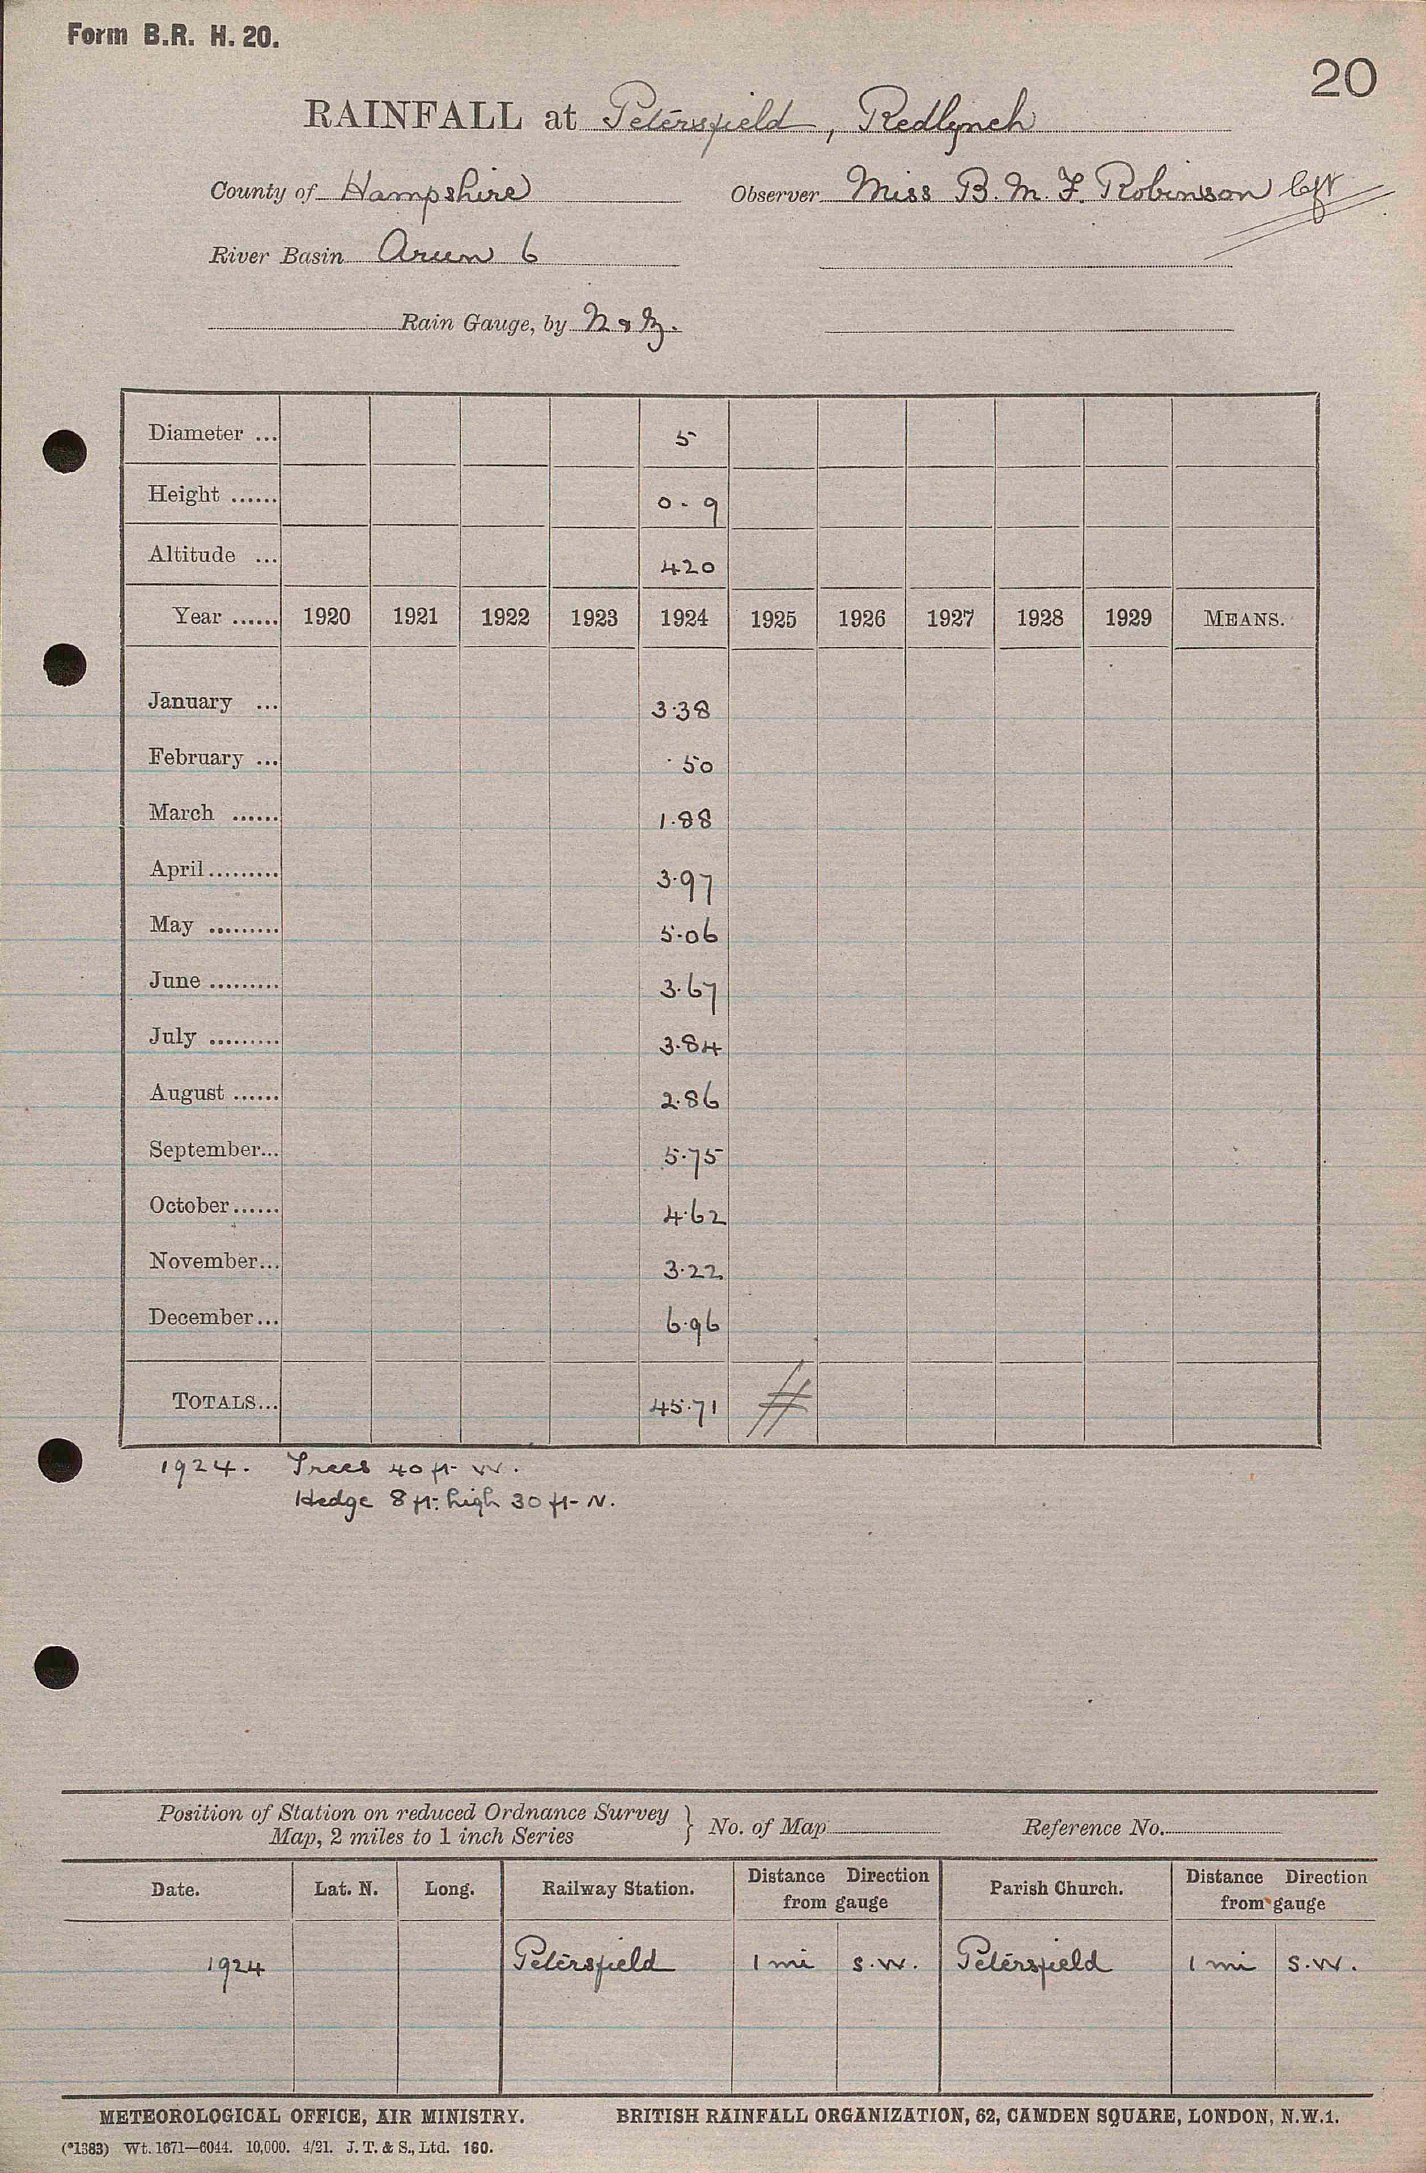 Form B.R. H. 20.
20
RAINFALL at Petersfield, Redlynch
County of Hampshire Observer Miss B. M. F. Robinson left
River Basin Arun 6
Rain Gauge, by N & Z.
Diameter ... 5
Height ...... 0 - 9
Altitude ... 420
Year ...... 1920 1921 1922 1923 1924 1925 1926 1927 1928 1929 MEANS.
January ... 3.38
February ... .50
March ...... 1.88
April ......... 3.97
May ......... 5.06
June ......... 3.67
July ......... 3.84
August ...... 2.86
September... 5.75
October ...... 4.62
November... 3.22
December... 6.96
TOTALS... 45.71
1924. Trees 40 ft W.
Hedge 8 ft. high 30 ft N.
Position of Station on reduced Ordnance Survey
Map, 2 miles to 1 inch Series } No. of Map Reference No.
Date. Lat. N. Long. Railway Station. Distance Direction from gauge Parish Church. Distance Direction from gauge
1924 Petersfield 1 mi S.W. Petersfield 1 mi S.W.
METEOROLOGICAL OFFICE, AIR MINISTRY. BRITISH RAINFALL ORGANIZATION, 62, CAMDEN SQUARE, LONDON, N.W.1.
(*1383) Wt. 1671—6044. 10,000. 4/21. J. T. & S., Ltd. 160.